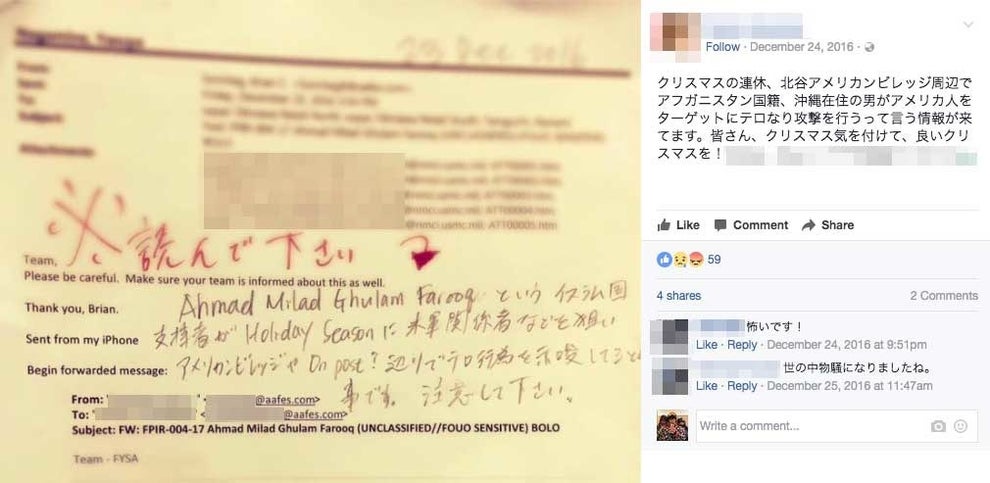 23 Dec 2016
From:
Sent:
To:
Subject:
Attachments:
必読んで下さい
Team,
Please be careful. Make sure your team is informed about this as well.
Thank you, Brian.
Sent from my iPhone
Begin forwarded message:
Ahmad Milad Ghulam Farooq という イスラム国
支持者が Holiday Season に 米軍関係者などを狙い
アメリカンビレッジや On post? 辺りでテロ行為を示唆してるとの
事です。 注意して下さい。
From: " " < @aafes.com>
To: " " < @aafes.com>
Subject: FW: FPIR-004-17 Ahmad Milad Ghulam Farooq (UNCLASSIFIED//FOUO SENSITIVE) BOLO
Team - FYSA
Follow · December 24, 2016 ·
クリスマスの連休、北谷アメリカンビレッジ周辺で
アフガニスタン国籍、沖縄在住の男がアメリカ人を
ターゲットにテロなり攻撃を行うって言う情報が来
てます。皆さん、クリスマス気を付けて、良いクリ
スマスを！
Like Comment Share
59
4 shares 2 Comments
怖いです！
Like · Reply · December 24, 2016 at 9:51pm
世の中物騒になりましたね。
Like · Reply · December 25, 2016 at 11:47am
Write a comment...